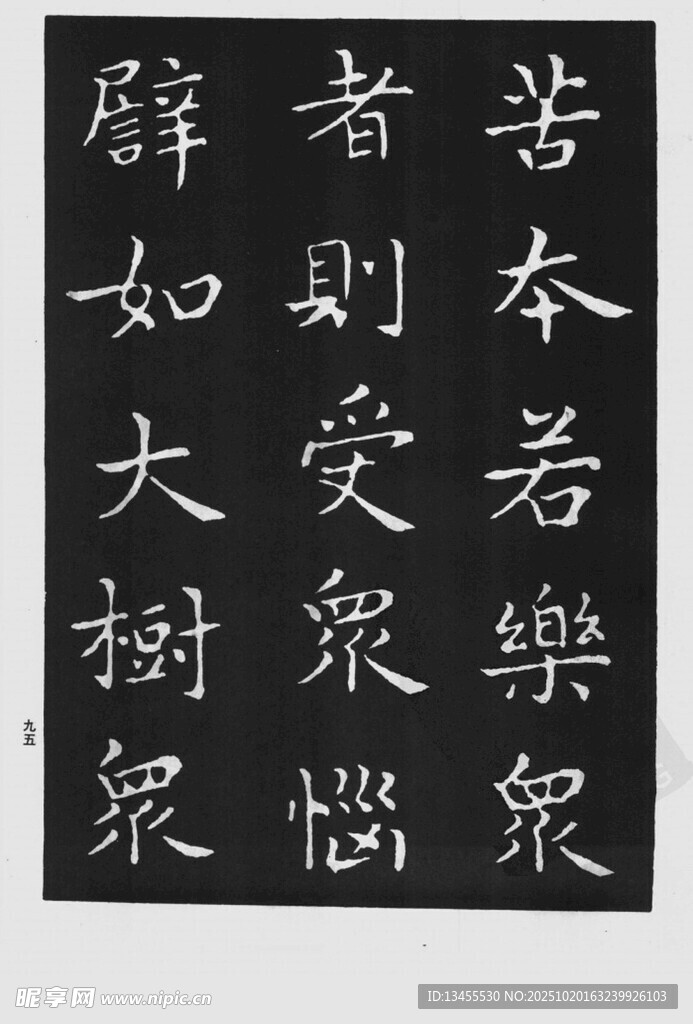 苦本若樂眾
者則受眾惱
譬如大樹眾
九五
昵享网 www.nipic.cn
ID:13455530 NO:20251020163239926103